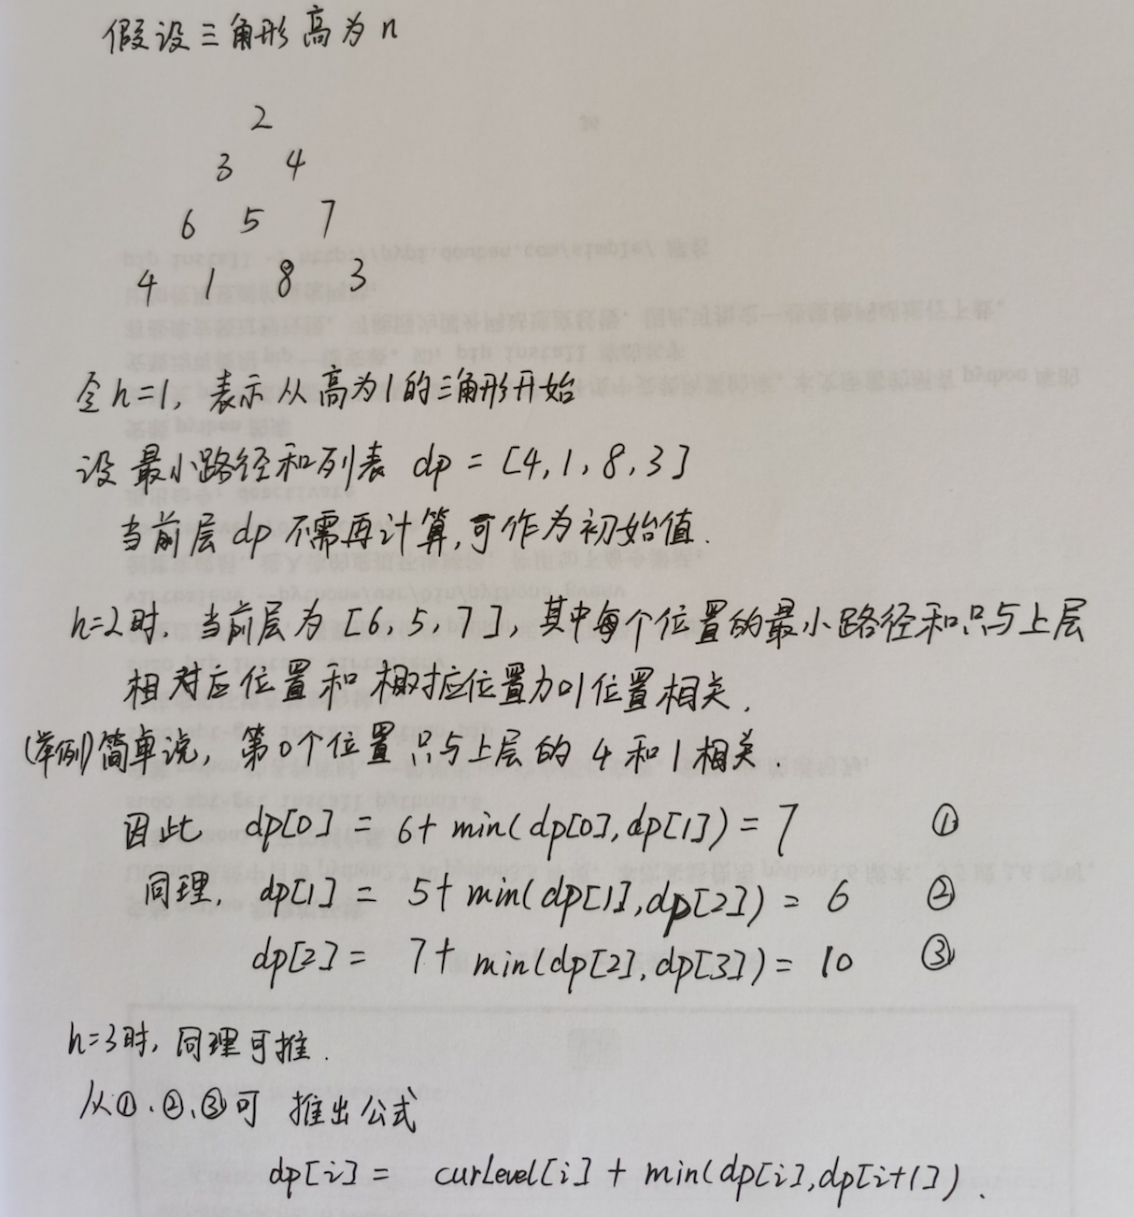 假设三角形高为n
2
3 4
6 5 7
4 1 8 3
令h=1, 表示从高为1的三角形开始
设最小路径和列表 dp = [4,1,8,3]
当前层dp不需再计算,可作为初始值.
h=2时. 当前层为 [6,5,7], 其中每个位置的最小路径和只与上层
相对应位置和相对应位置加1位置相关.
(举例)简单说, 第0个位置只与上层的4和1相关.
因此 dp[0] = 6+ min(dp[0],dp[1]) = 7 ①
同理, dp[1] = 5+ min(dp[1],dp[2]) = 6 ②
dp[2] = 7+ min(dp[2],dp[3]) = 10 ③
h=3时, 同理可推.
从①、②、③可 推出公式
dp[i] = curLevel[i] + min(dp[i],dp[i+1]).